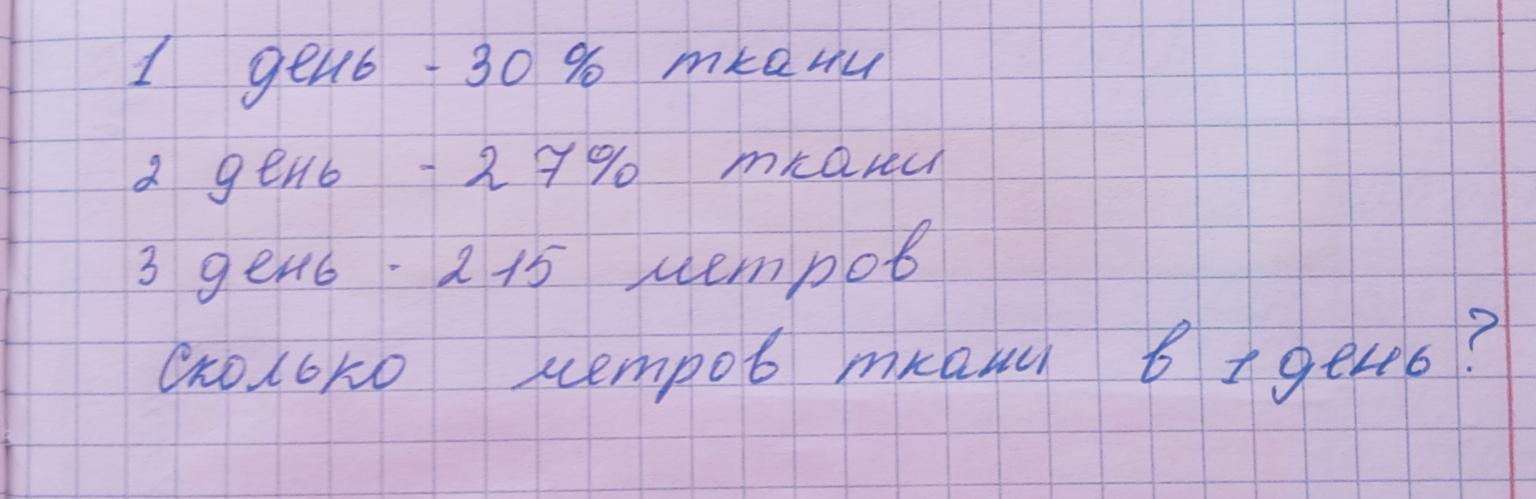 1 день - 30 % ткани
2 день - 27% ткани
3 день - 215 метров
Сколько метров ткани в 1 день?